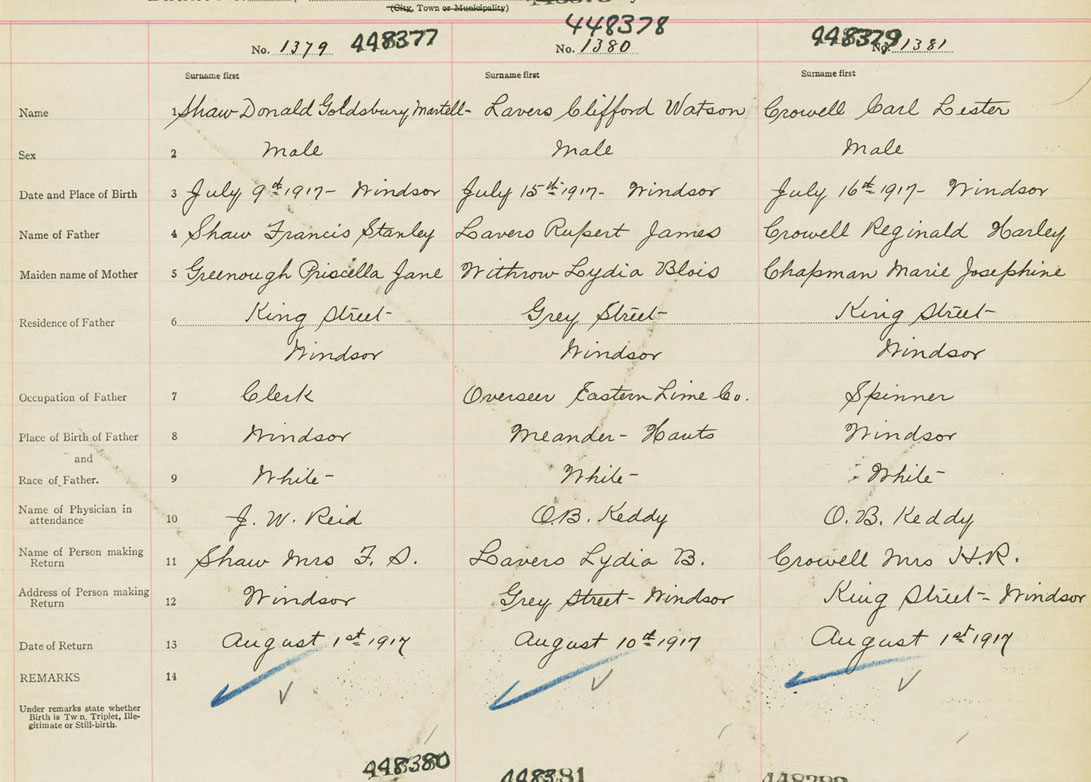 (City, Town or Municipality)
No. 1379 448377
448378
No. 1380
448379 No. 1381
Surname first Surname first Surname first
Name 1 Shaw Donald Goldsbury Martell- Lavers Clifford Watson Crowell Carl Lester
Sex 2 Male Male Male
Date and Place of Birth 3 July 9th 1917- Windsor July 15th 1917- Windsor July 16th 1917- Windsor
Name of Father 4 Shaw Francis Stanley Lavers Rupert James Crowell Reginald Harley
Maiden name of Mother 5 Greenough Priscella Jane Withrow Lydia Blois Chapman Marie Josephine
Residence of Father 6 King Street- Grey Street- King Street-
Windsor Windsor Windsor
Occupation of Father 7 Clerk Overseer Eastern Lime Co. Spinner
Place of Birth of Father 8 Windsor Meander- Hants Windsor
and
Race of Father. 9 White- White- White-
Name of Physician in attendance 10 J. W. Reid O.B. Keddy O.B. Keddy
Name of Person making Return 11 Shaw Mrs F. S. Lavers Lydia B. Crowell Mrs H.R.
Address of Person making Return 12 Windsor Grey Street- Windsor King Street- Windsor
Date of Return 13 August 1st 1917 August 10th 1917 August 1st 1917
REMARKS 14
Under remarks state whether
Birth is Twin, Triplet, Ille-
gitimate or Still-birth.
448380 448381